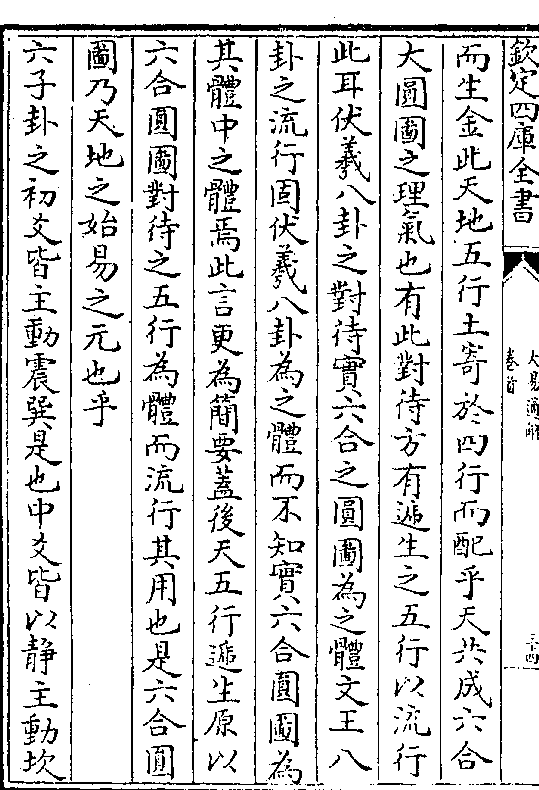 欽定四庫全書
大易通解
卷首
三十四
而生金此天地五行土寄於四行而配乎天共成六合
大圓圖之理氣也有此對待方有遞生之五行以流行
此耳伏羲八卦之對待實六合之圓圖為之體文王八
卦之流行固伏羲八卦為之體而不知實六合圓圖為
其體中之體焉此言更為簡要蓋後天五行遞生原以
六合圓圖對待之五行為體而流行其用也是六合圓
圖乃天地之始易之元也乎
六子卦之初爻皆主動震巽是也中爻皆以静主動坎